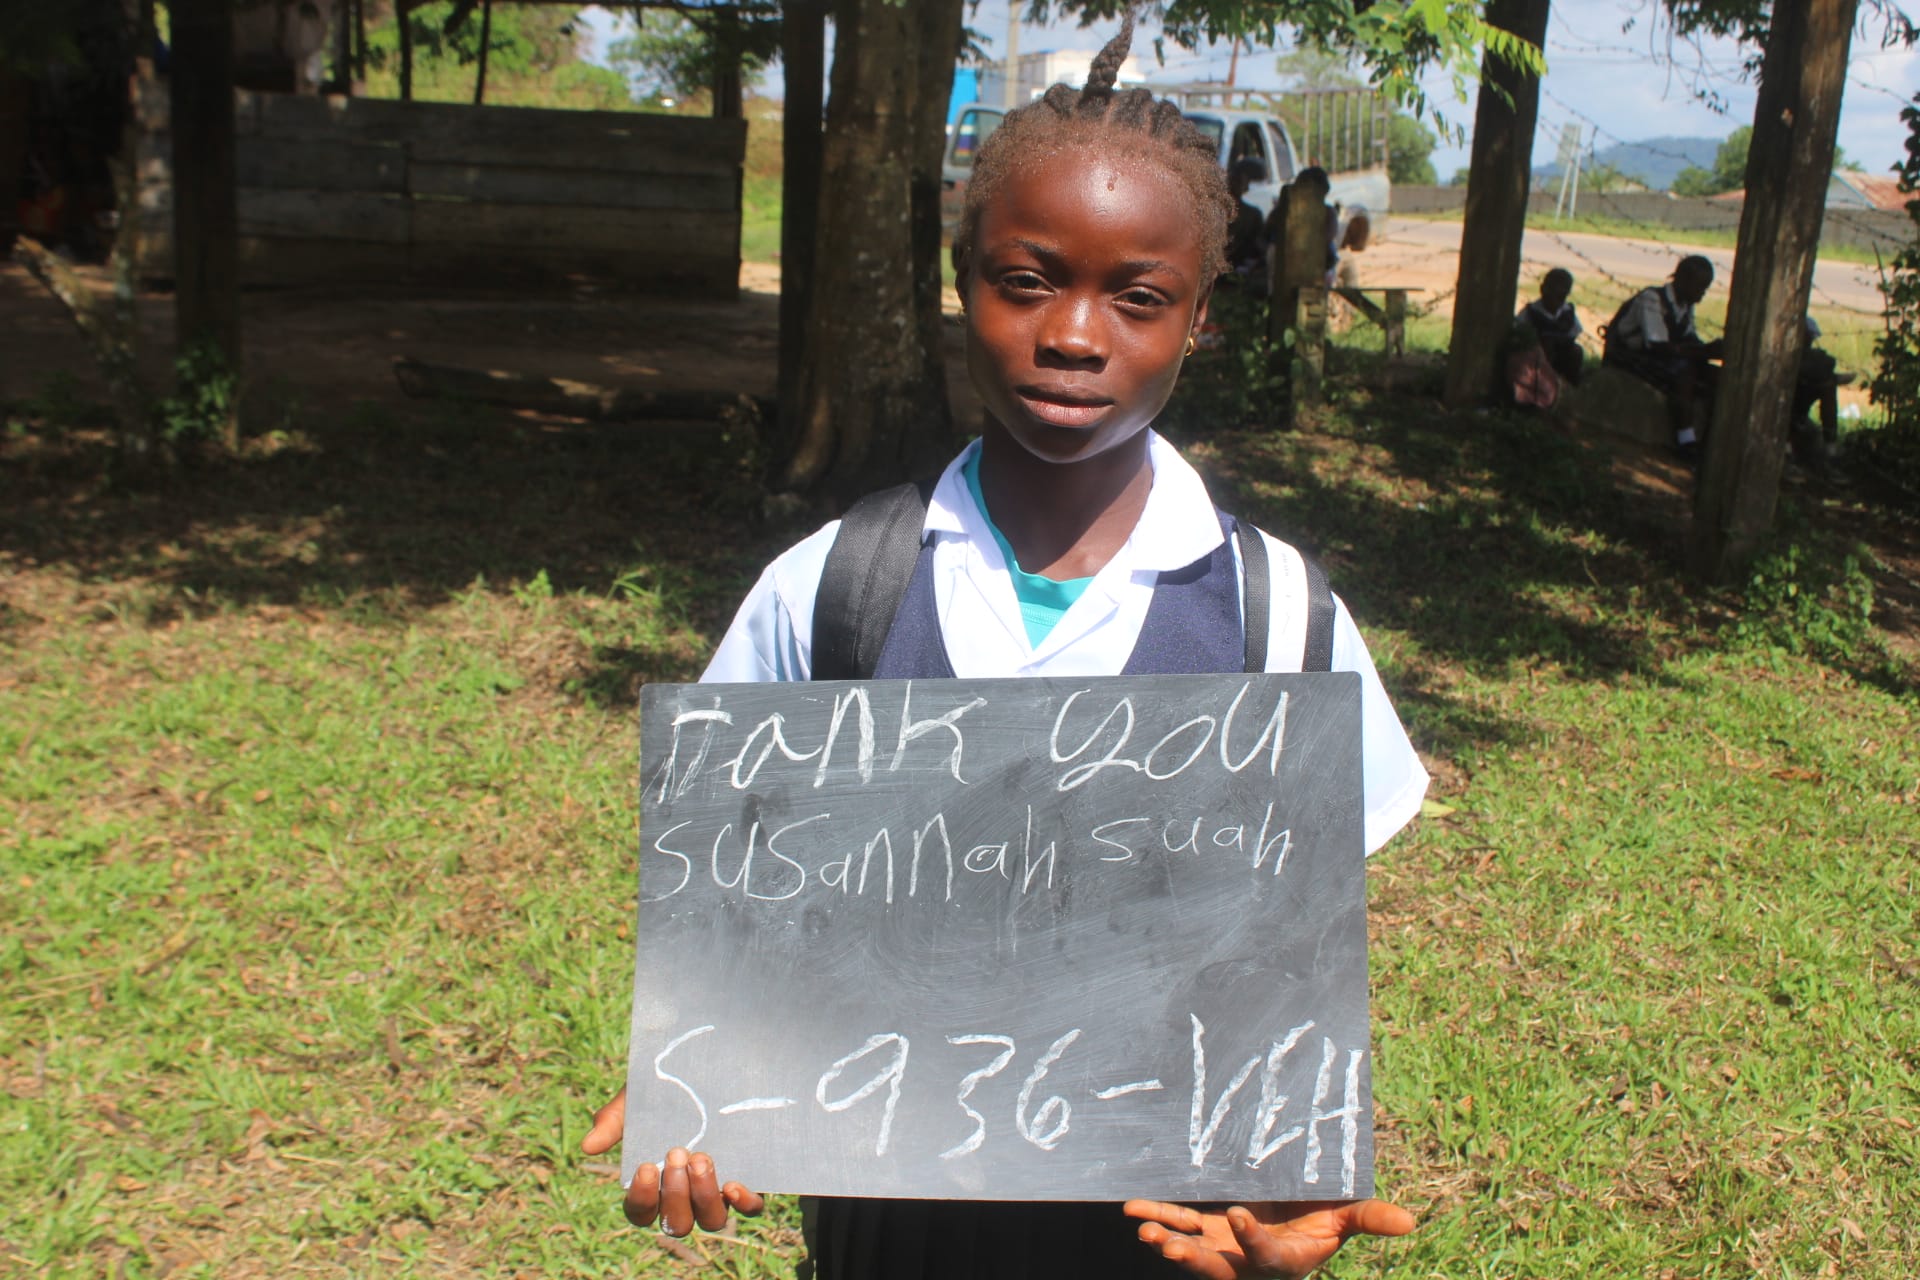 Tank you
Susannah Suah
S-936-VEH